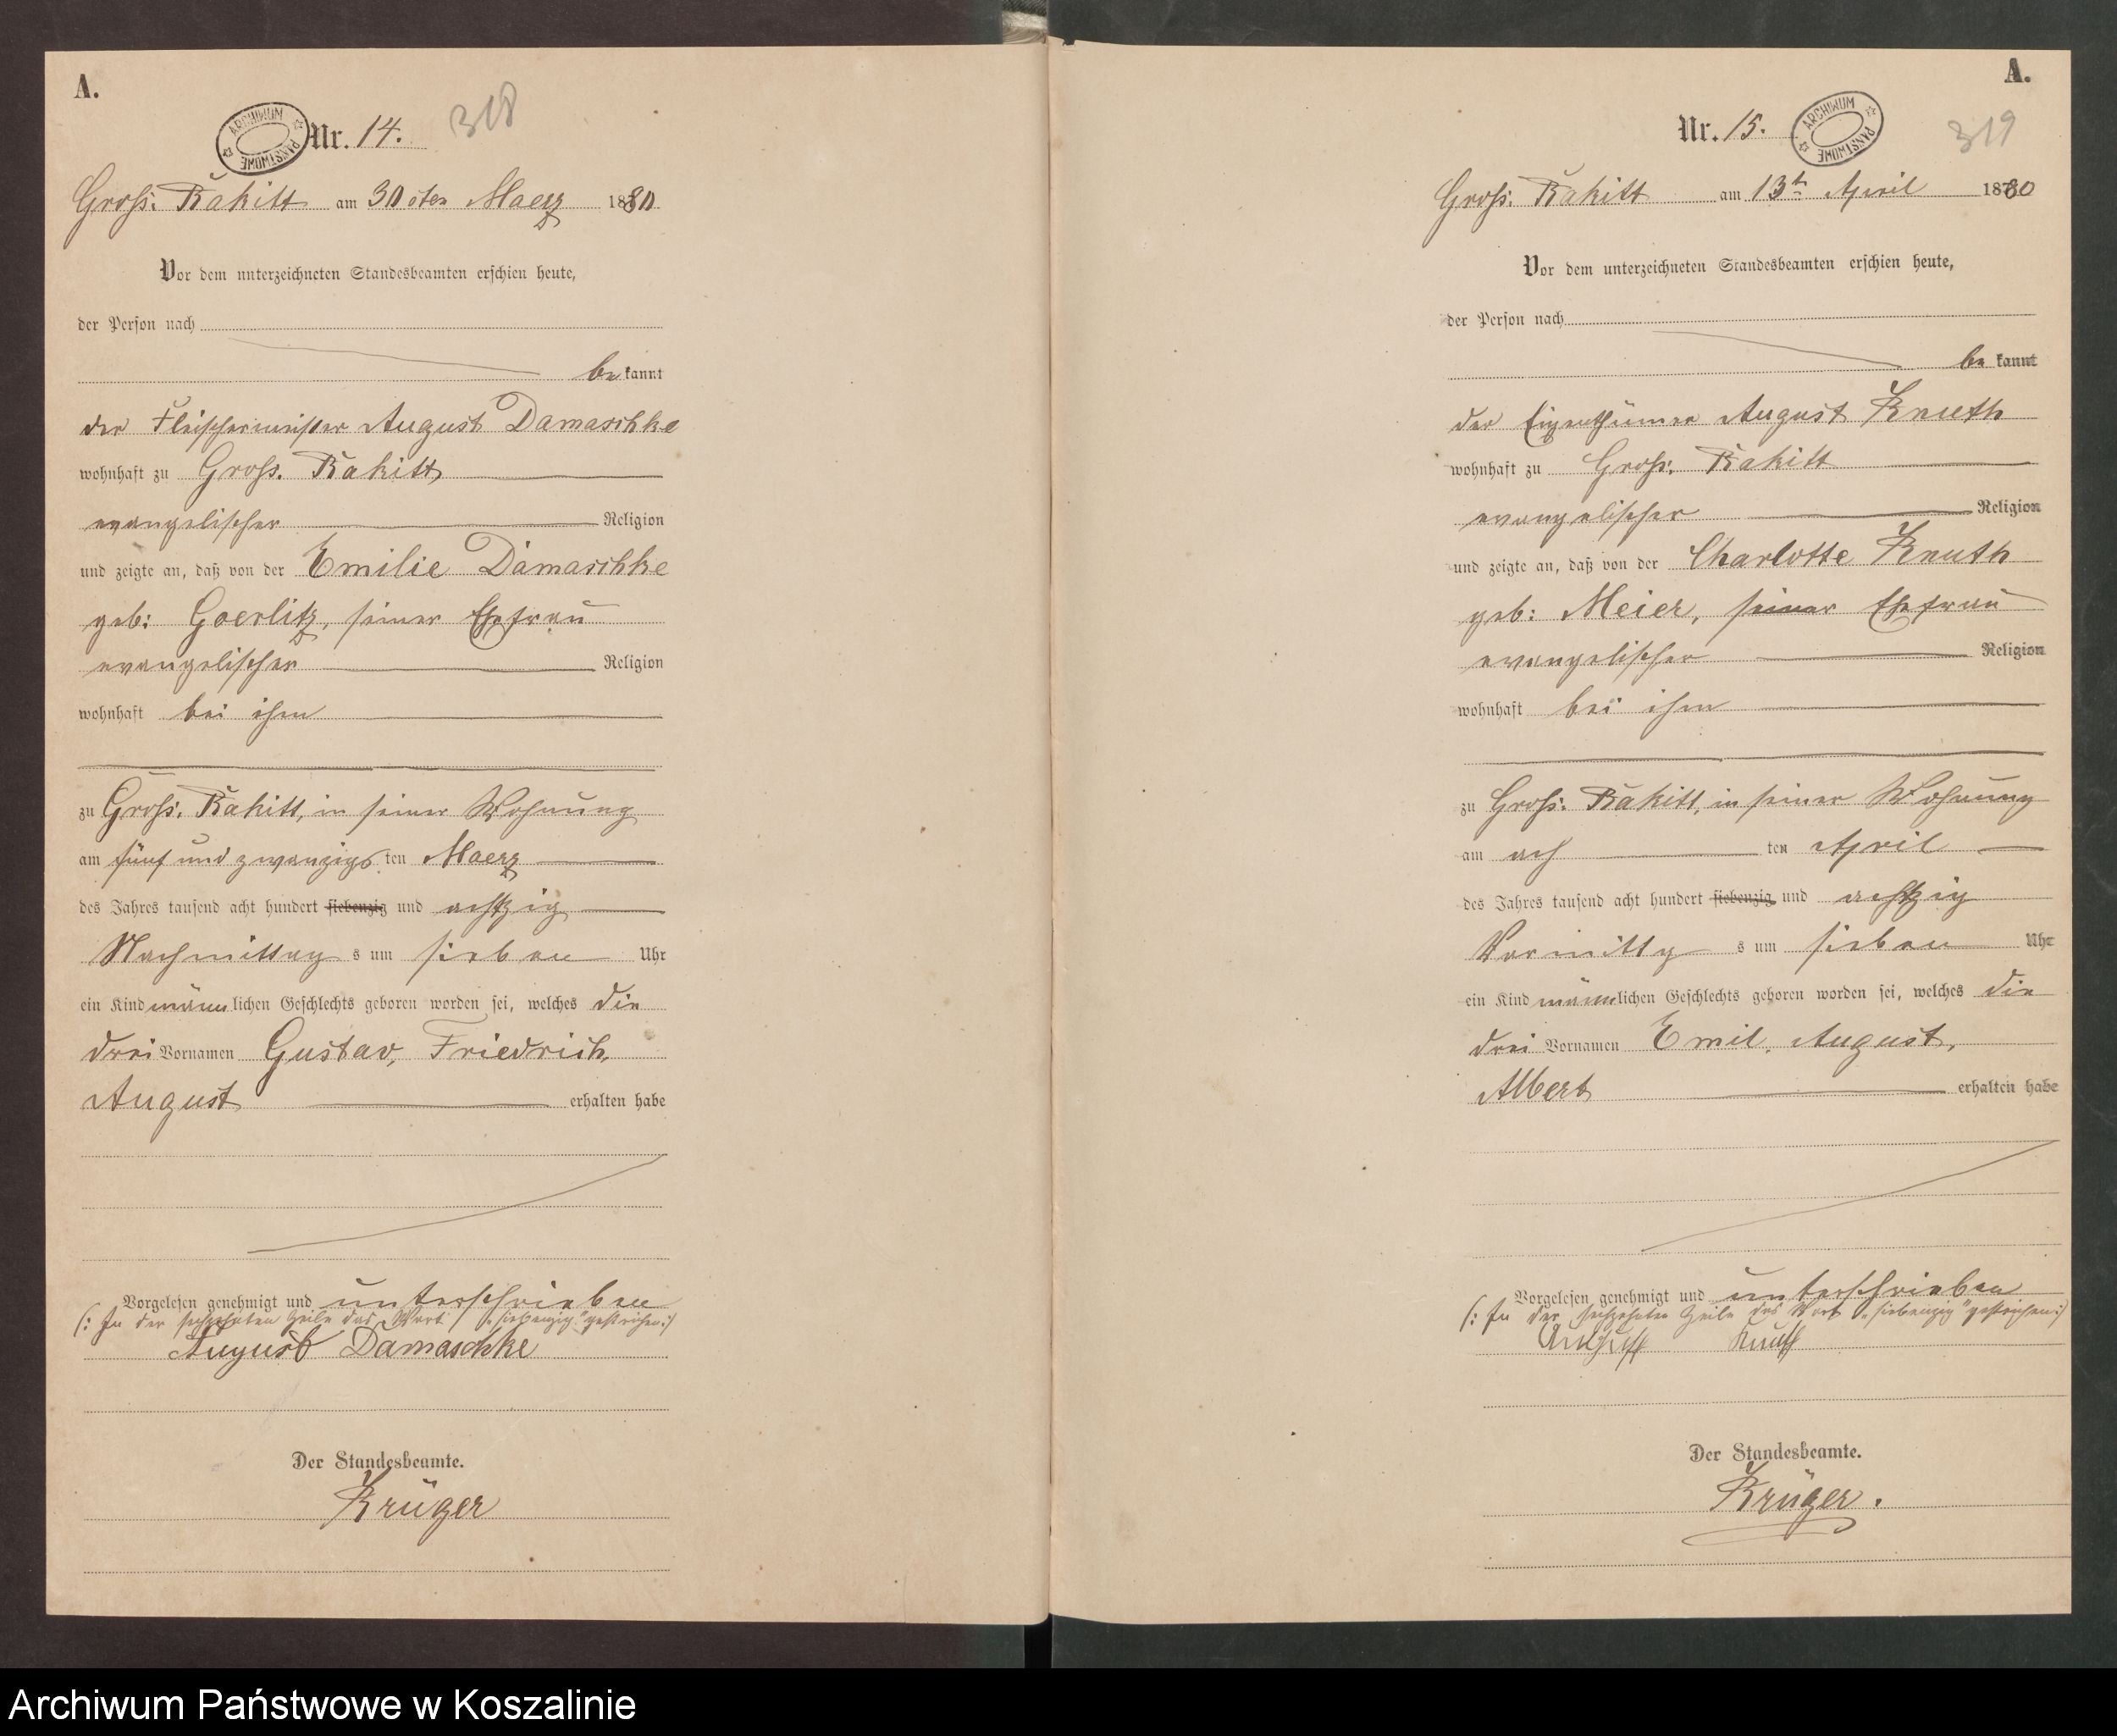 A.
ARCHIWUM PAŃSTWOWE
Nr. 14.
318
Gross: Rakitt am 30 sten Maerz 1880
Vor dem unterzeichneten Standesbeamten erschien heute,
der Person nach
be kannt
der Fleischermeister August Damaschke
wohnhaft zu Gross. Rakitt
evangelischer Religion
und zeigte an, daß von der Emilie Damaschke
geb: Goerlitz, seiner Ehefrau
evangelischer Religion
wohnhaft bei ihm
zu Gross: Rakitt, in seiner Wohnung
am fünf und zwanzigs ten Maerz
des Jahres tausend acht hundert siebenzig und achtzig
Nachmittag s um sieben Uhr
ein Kind männlichen Geschlechts geboren worden sei, welches die
drei Vornamen Gustav, Friedrich,
August erhalten habe
Vorgelesen genehmigt und unterschrieben
(: In der sechzehnten Zeile das Wort „siebenzig“ gestrichen :)
August Damaschke
Der Standesbeamte.
Krüger
A.
Nr. 15.
ARCHIWUM PAŃSTWOWE
319
Gross: Rakitt am 13t April 1880
Vor dem unterzeichneten Standesbeamten erschien heute,
der Person nach
be kannt
der Eigenthümer August Knuth
wohnhaft zu Gross: Rakitt
evangelischer Religion
und zeigte an, daß von der Charlotte Knuth
geb: Meier, seiner Ehefrau
evangelischer Religion
wohnhaft bei ihm
zu Gross: Rakitt, in seiner Wohnung
am ach ten April
des Jahres tausend acht hundert siebenzig und achtzig
Vormittg s um sieben Uhr
ein Kind männlichen Geschlechts geboren worden sei, welches die
drei Vornamen Emil, August,
Albert erhalten habe
Vorgelesen genehmigt und unterschrieben
(: In der sechzehnten Zeile das Wort „siebenzig“ gestrichen :)
August Knuth
Der Standesbeamte.
Krüger.
Archiwum Państwowe w Koszalinie